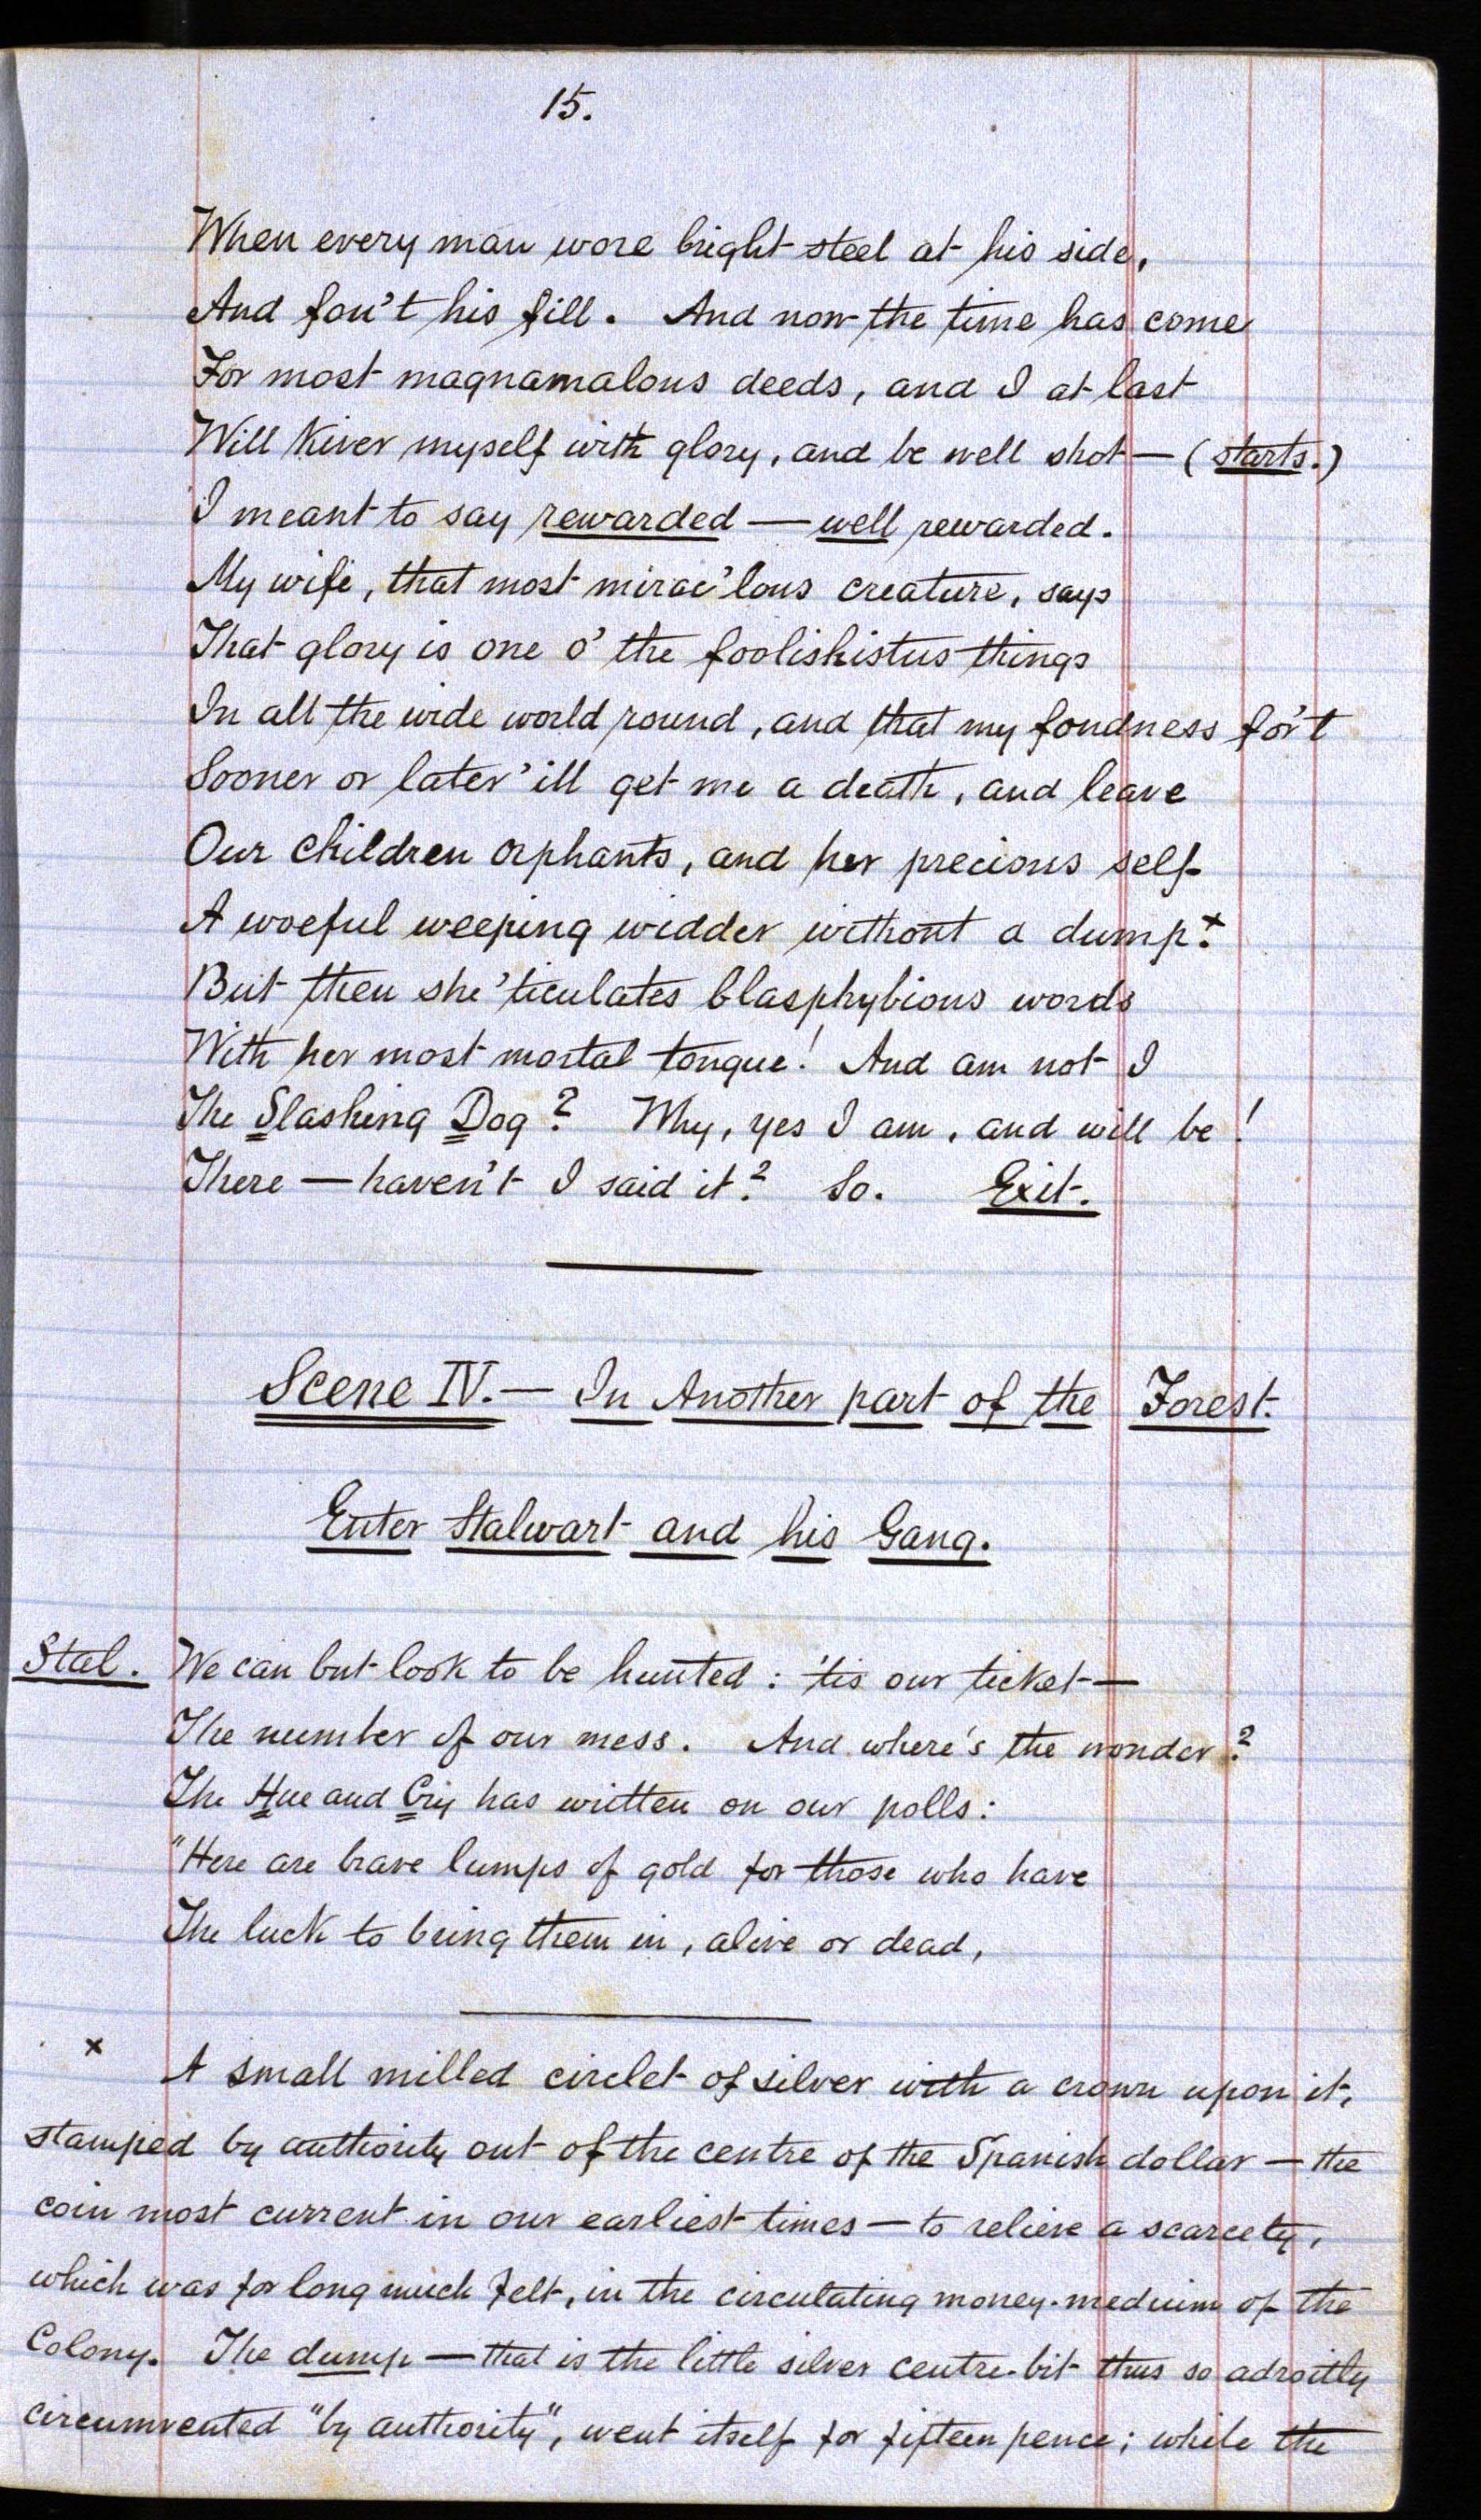 15.
When every man wore bright steel at his side,
And fou't his fill. And now the time has come
For most magnamalous deeds, and I at last
Will kiver myself with glory, and be well shot — (starts.)
I meant to say rewarded — well rewarded.
My wife, that most mirac'lous creature, says
That glory is one o' the foolishistus things
In all the wide world round, and that my fondness for't
Sooner or later 'ill get me a death, and leave
Our children orphants, and her precious self
A woeful weeping widder without a dump.×
But then she 'ticulates blasphybious words
With her most mortal tongue! And am not I
The Slashing Dog? Why, yes I am, and will be!
There — haven't I said it? So. Exit.
Scene IV. — In Another part of the Forest.
Enter Stalwart and his Gang.
Stal. We can but look to be hunted: 'tis our ticket —
The number of our mess. And where's the wonder?
The Hue and Cry has written on our polls:
"Here are brave lumps of gold for those who have
The luck to bring them in, alive or dead,
× A small milled circlet of silver with a crown upon it,
stamped by authority out of the centre of the Spanish dollar — the
coin most current in our earliest times — to relieve a scarcety,
which was for long much felt, in the circulating money-medium of the
Colony. The dump — that is the little silver centre-bit thus so adroitly
circumvented "by authority", went itself for fifteen pence; while the